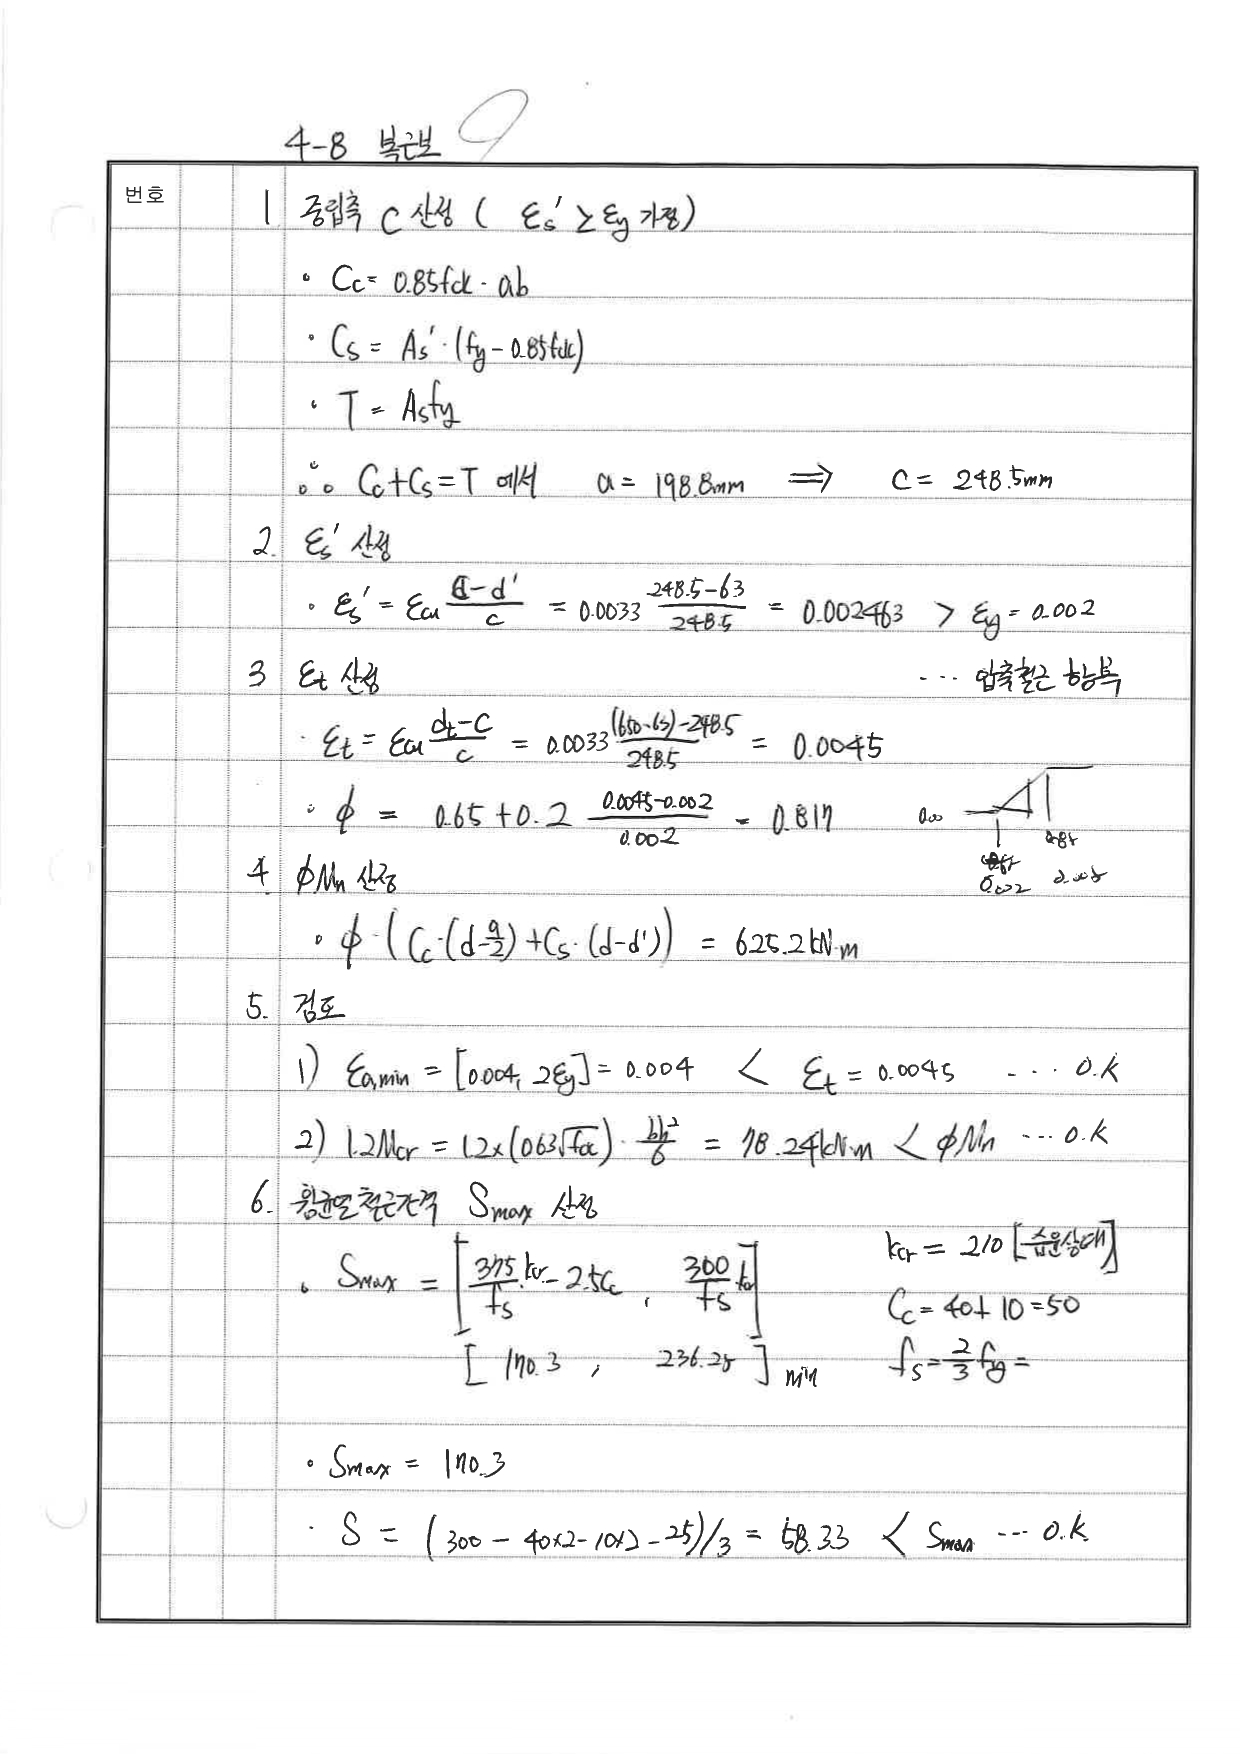 4-8 복근보
번호
1 중립축 C 산정 ( εs' ≥ εy 가정)
· Cc = 0.85fck · ab
· Cs = As' · (fy - 0.85fck)
· T = Asfy
∴ Cc + Cs = T 에서 a = 198.8mm ⟹ C = 248.5mm
2. εs' 산정
· εs' = εcu (c-d')/c = 0.0033 (248.5-63)/248.5 = 0.002463 > εy = 0.002
3 εt 산정 ... 압축철근 항복
· εt = εcu (dt-c)/c = 0.0033 ((650-63)-248.5)/248.5 = 0.0045
· φ = 0.65 + 0.2 (0.0045-0.002)/0.002 = 0.817
0.002
4 φMn 산정
· φ · (Cc·(d-a/2) + Cs·(d-d')) = 625.2kN·m
5. 검토
1) εa,min = [0.004, 2εy] = 0.004 < εt = 0.0045 ... O.K
2) 1.2Mcr = 1.2×(0.63√fck) · bh²/6 = 78.24kN·m < φMn ... O.K
6. 휨균열 철근간격 Smax 산정
kcr = 210 [습윤상태]
· Smax = [ 375/fs kcr - 2.5Cc , 300/fs kcr ]
Cc = 40 + 10 = 50
[ 170.3 , 236.25 ] min
fs = 2/3 fy =
· Smax = 170.3
· S = (300 - 40×2 - 10×2 - 25)/3 = 58.33 < Smax ... O.K